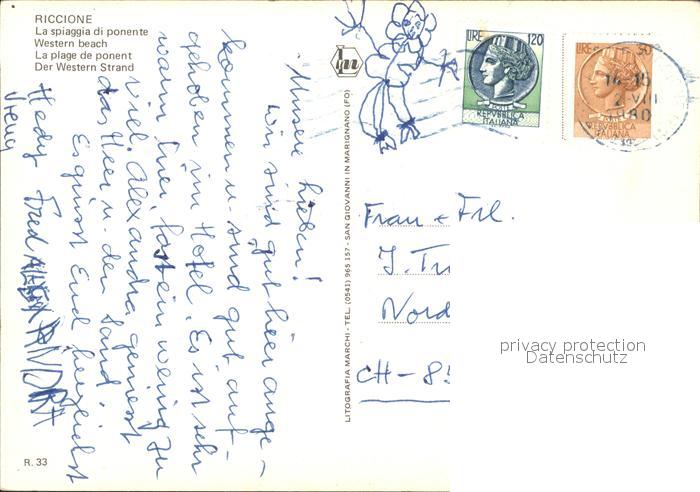 RICCIONE
La spiaggia di ponente
Western beach
La plage de ponent
Der Western Strand
Unsere Lieben!
Wir sind gut hier ange-
kommen u. sind gut auf-
gehoben im Hotel. Es ist sehr
warm hier, fast ein wenig zu
viel. Alexandra geniesst
das Meer u. den Sand.
Es grüsst Euch herzlichst
Hedy Fred ALEXANDRA
R. 33
LITOGRAFIA MARCHI - TEL. (0541) 965 157 - SAN GIOVANNI IN MARIGNANO (FO)
LIRE 120
POSTE
REPVBBLICA
ITALIANA
LIRE 30
REPVBBLICA
ITALIANA
14-15
2-VIII
1980
Frau + Frl.
J. Tr
Nord
CH-85
privacy protection
Datenschutz